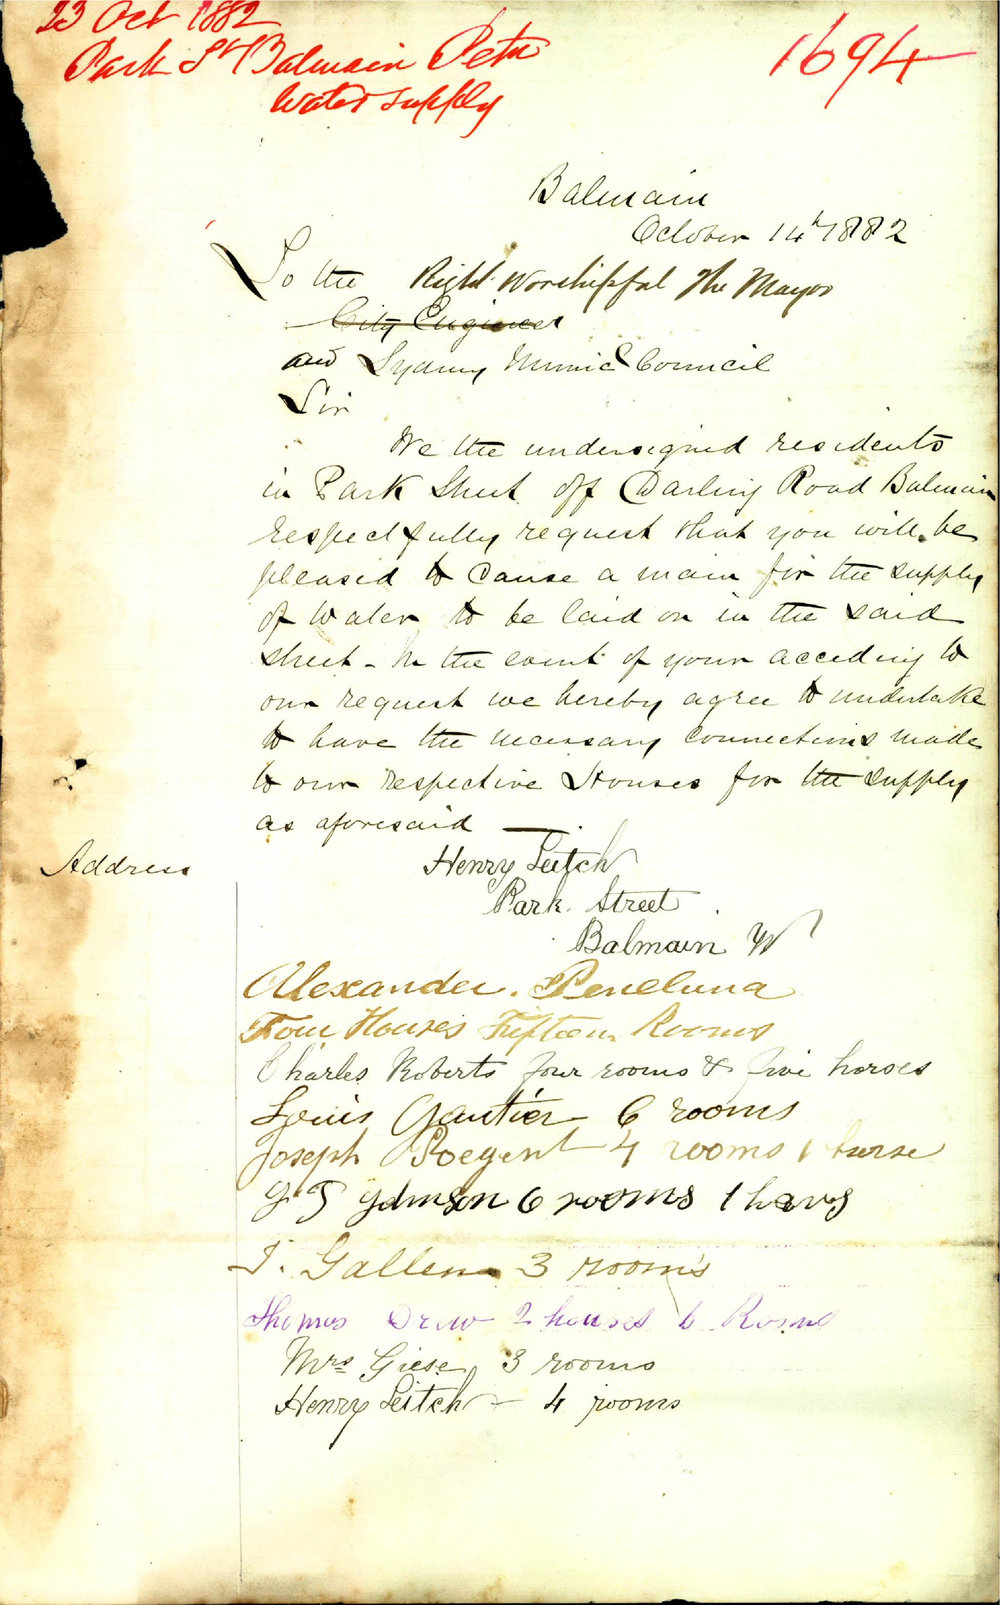 23 Oct 1882
Park St Balmain Petn
Water supply
1694
Balmain
October 14th 1882
To the Right Worshipful The Mayor
City Engineer
and Sydney Municl Council
Sir
We the undersigned residents
in Park Street off Darling Road Balmain
respectfully request that you will be
pleased to cause a main for the supply
of Water to be laid on in the said
street - In the event of your acceding to
our request we hereby agree to undertake
to have the necessary connections made
to our respective Houses for the supply
as aforesaid
Address
Henry Leitch
Park Street
Balmain W
Alexander Peneluna
Four Houses Fifteen Rooms
Charles Roberts four rooms & five horses
Louis Gautier 6 rooms
Joseph 4 rooms 1 horse
6 rooms 1
J. Gallen 3 rooms
Thomas Drew 2 houses 6 Rooms
Mrs Giese 3 rooms
Henry Leitch - 4 rooms